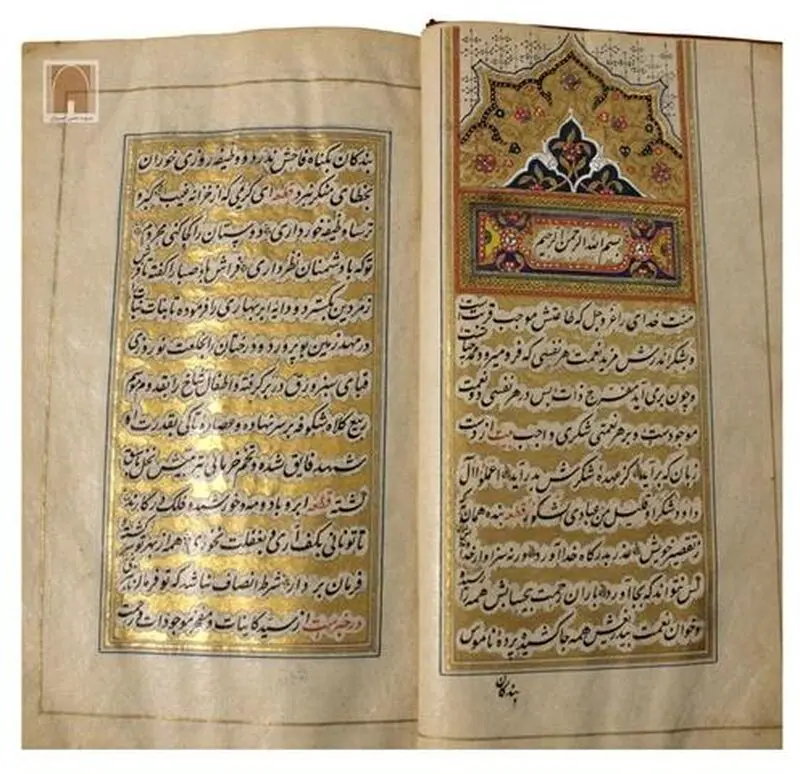 بسم الله الرحمن الرحیم
منت خدای را عز و جل که طاعتش موجب قربت است
و بشکر اندرش مزید نعمت هر نفسی که فرو میرود ممد حیات
و چون بر می آید مفرح ذات پس در هر نفسی دو نعمت
موجودست و بر هر نعمتی شکری واجب بیت از دست
زبان که برآید کز عهدهٔ شکرش بدر آید اعملوا آل
داود شکرا و قلیل من عبادی الشکور قطعه بنده همان به که
ز تقصیر خویش عذر بدرگاه خدا آورد ورنه سزاوار خداوندیش
کس نتواند که بجا آورد باران رحمت بیحسابش همه را رسیده
و خوان نعمت بیدریغش همه جا کشیده پردهٔ ناموس
بندکان
بندکان بکناه فاحش ندرد و وظیفه روزی خوران
بخطای منکر نبرد قطعه ای کریمی که از خزانه غیب کبر و
ترسا وظیفه خور داری دوستان را کجا کنی محروم
تو که با دشمنان نظر داری فراش باد صبا را کفته تا فرش
زمردین بکسترد و دایهٔ ابر بهاری را فرموده تا بنات نبات
در مهد زمین بپرورد و درختان را بخلعت نوروزی
قبای سبز ورق در بر کرفته و اطفال شاخ را بقدوم موسم
ربیع کلاه شکوفه بر سر نهاده و عصاره تاکی بقدرت او
شهد فایق شده و تخم خرمائی بتربیتش نخل باسق
کشته قطعه ابر و باد و مه و خورشید و فلک در کارند
تا تو نانی بکف آری و بغفلت نخوری همه از بهر تو سرکشته و
فرمان بردار شرط انصاف نباشد که تو فرمان نبری
در خبرست از سید کاینات و مفخر موجودات و رحمت